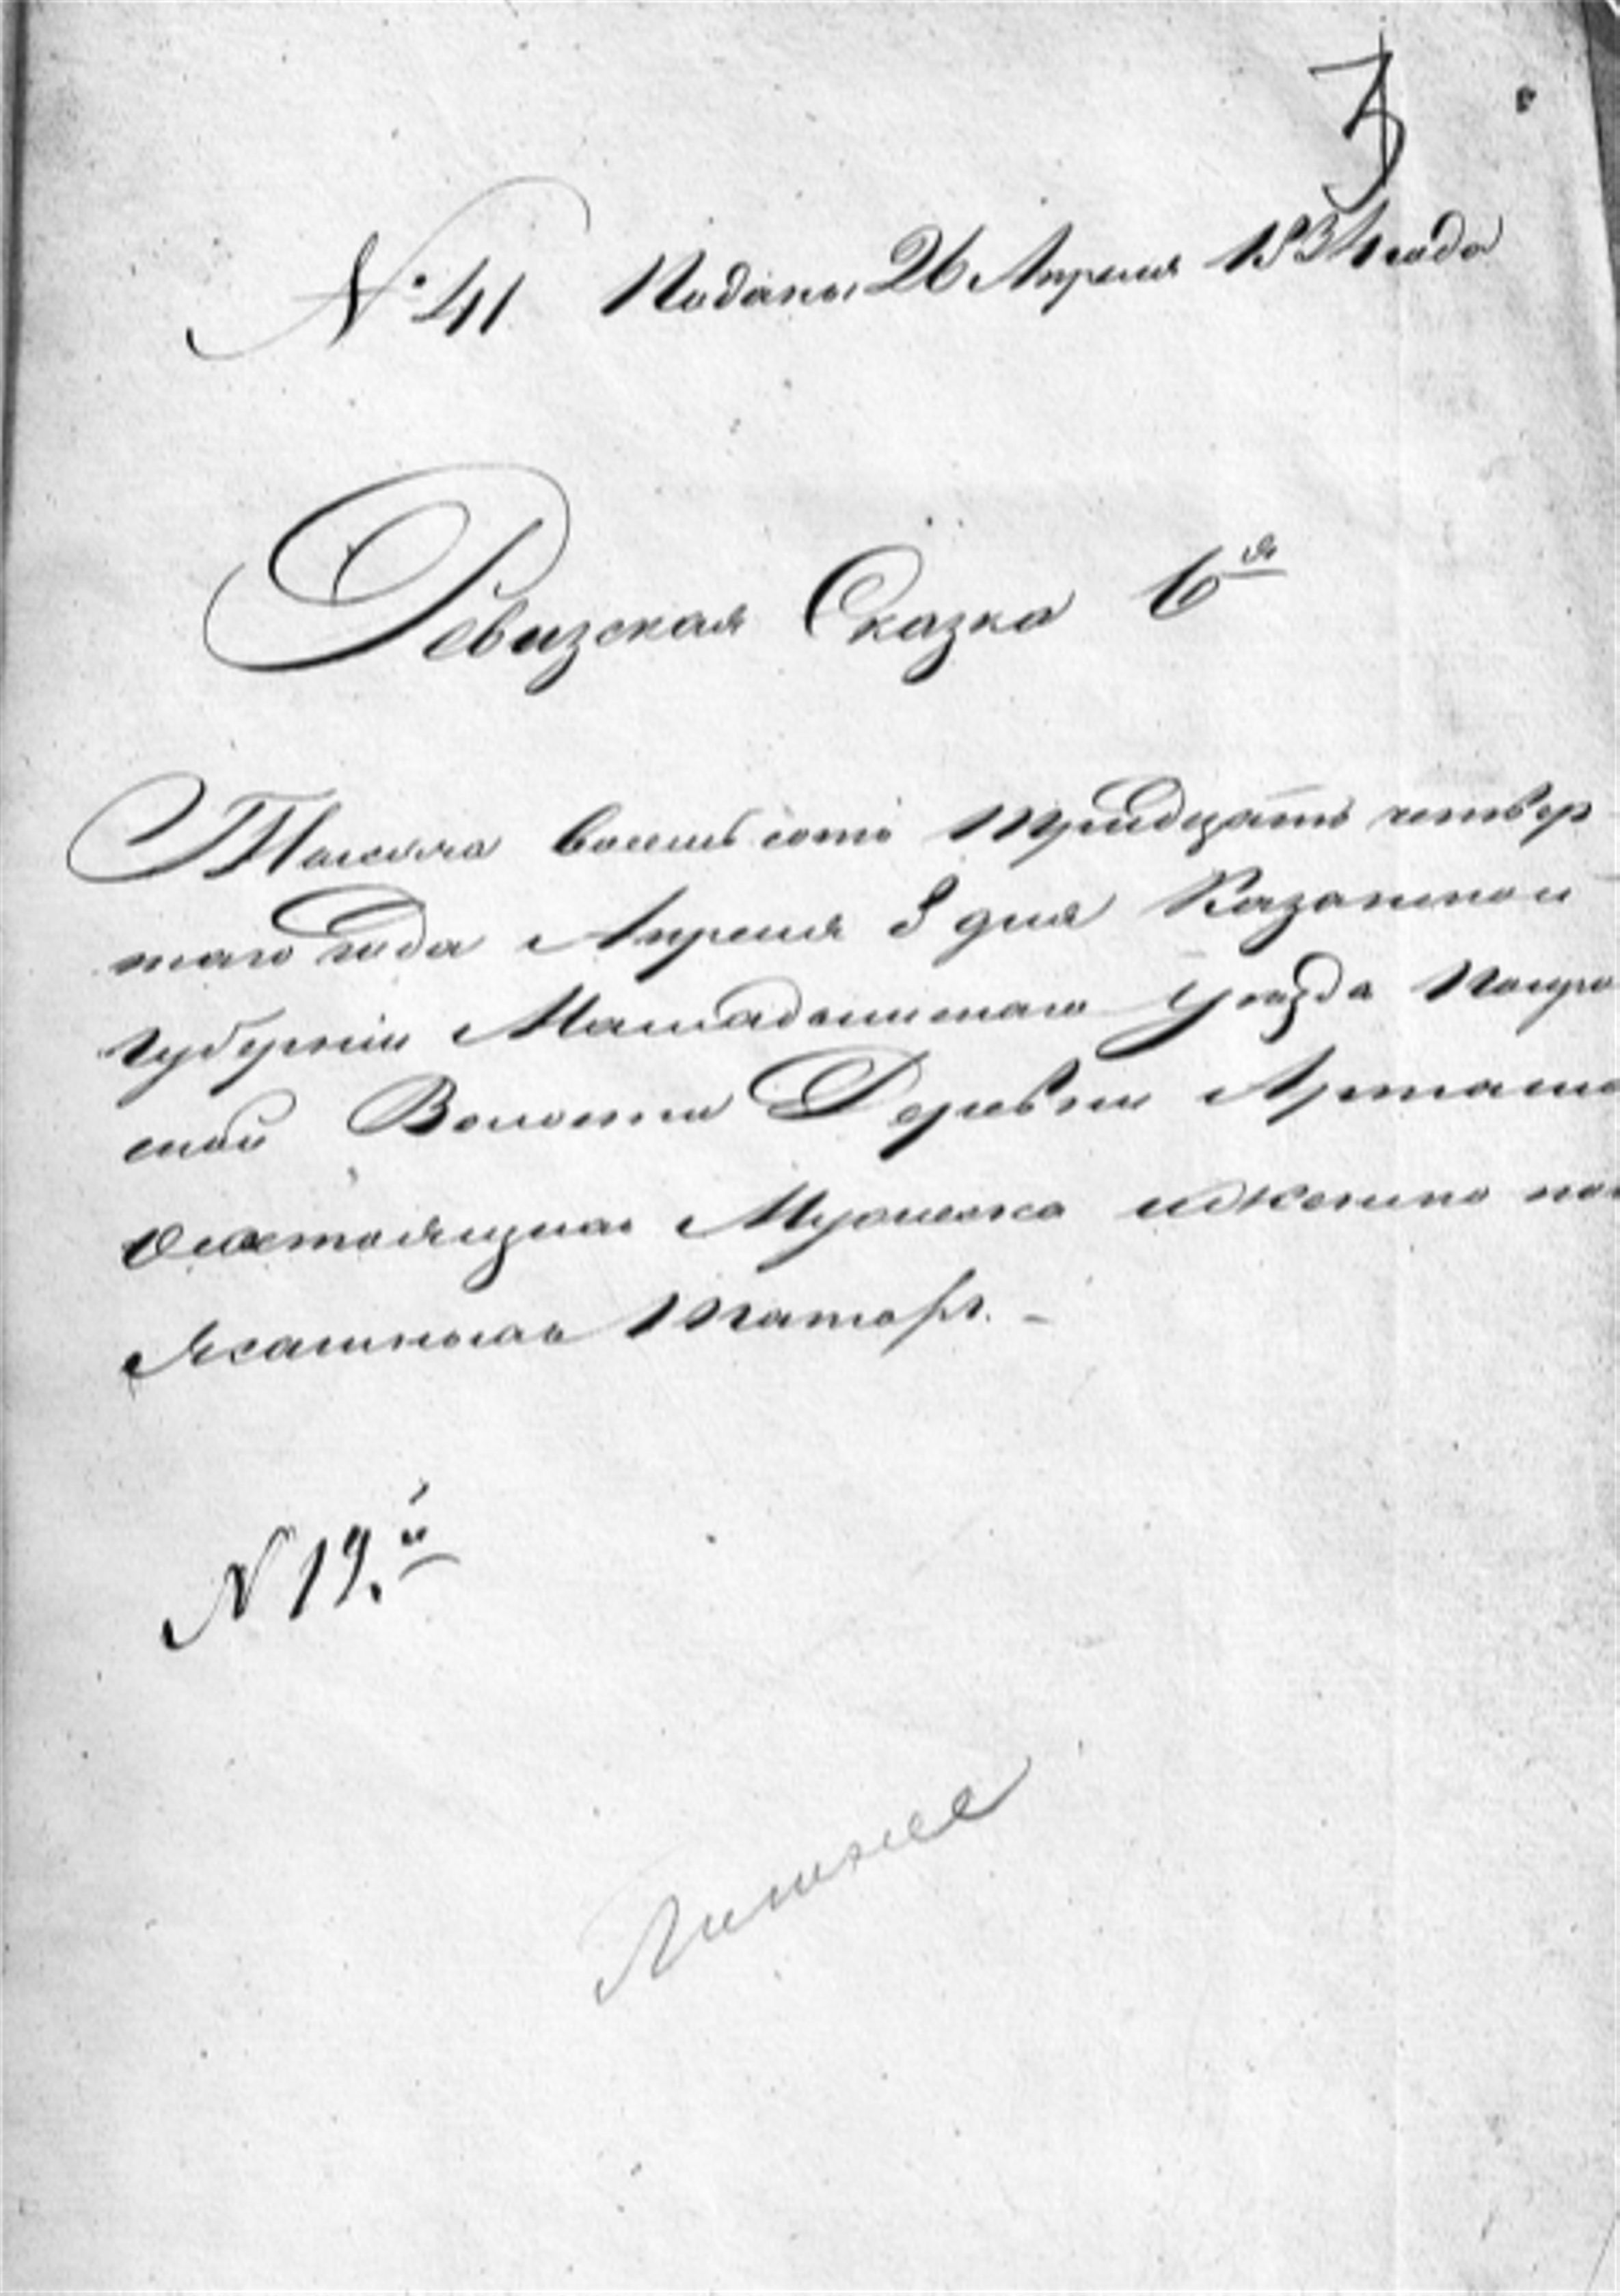 3
№ 41 Подана 26 Апреля 1834 года
Ревизская Сказка 6я
Тысяча восемь сотъ тридцать четвер
таго года Апреля 8 дня Казанской
губернии Мамадышскаго уезда
ской Волости Деревни
о состоящихъ Мужеска и женска пол
Ясашныхъ Татаръ. –
N 19.й
Лишнее